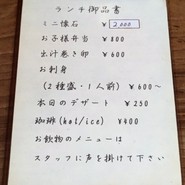 ランチ御品書
ミニ懐石 ¥2000
お子様弁当 ¥800
出汁巻き卵 ¥600
お刺身
(2種盛・1人前) ¥600〜
本日のデザート ¥250
珈琲(hot/ice) ¥400
お飲物のメニューは
スタッフに声を掛けて下さい